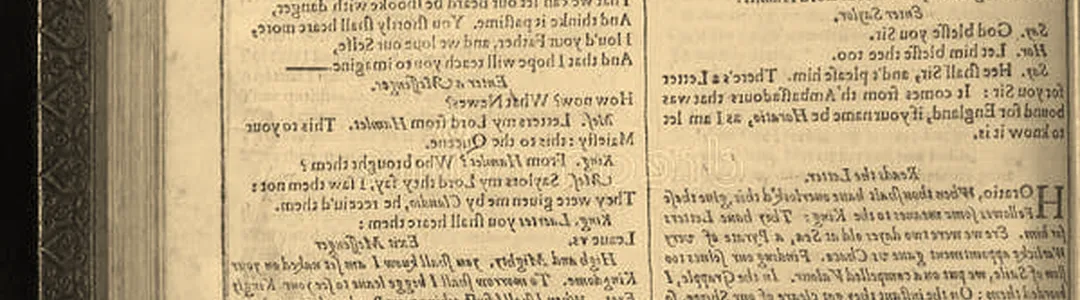 Enter Saylor.
Say. God blesse you Sir.
Hor. Let him blesse thee too.
Say. Hee shall Sir, and't please him. There's a Letter
for you Sir: It comes from th'Ambassadours that was
bound for England, if your name be Horatio, as I am let
to know it is.
Reads the Letter.
HOratio, When thou shalt haue ouerlook'd this, giue these
Fellowes some meanes to the King: They haue Letters
for him. Ere we were two dayes old at Sea, a Pyrate of very
Warlicke appointment gaue vs Chace. Finding our selues too
slow of Saile, we put on a compelled Valour. In the Grapple, I
boorded them: On the instant they got cleare of our Shippe, so
That we can let our beard be shooke with danger,
And thinke it pastime. You shortly shall heare more,
I lou'd your Father, and we loue our Selfe,
And that I hope will teach you to imagine
Enter a Messenger.
How now? What Newes?
Mes. Letters my Lord from Hamlet. This to your
Maiesty: this to the Queene.
King. From Hamlet? Who brought them?
Mes. Saylors my Lord they say, I saw them not:
They were giuen me by Claudio, he receiu'd them.
King. Laertes you shall heare them:
Leaue vs. Exit Messenger
High and Mighty, you shall know I am set naked on your
Kingdome. To morrow shall I begge leaue to see your Kingly